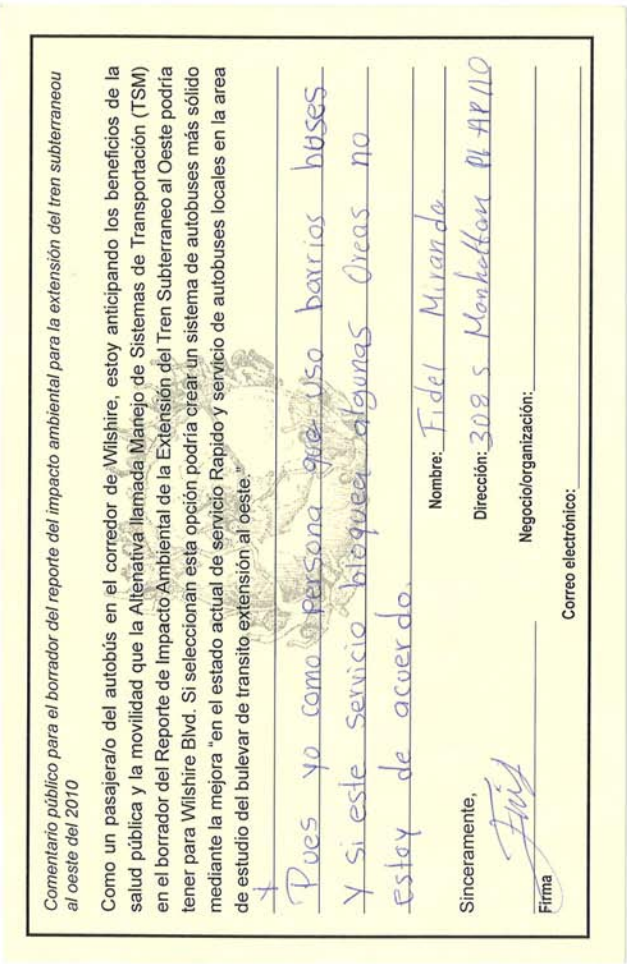 Comentario público para el borrador del reporte del impacto ambiental para la extensión del tren subterraneou
al oeste del 2010
Como un pasajera/o del autobús en el corredor de Wilshire, estoy anticipando los beneficios de la
salud pública y la movilidad que la Altenativa llamada Manejo de Sistemas de Transportación (TSM)
en el borrador del Reporte de Impacto Ambiental de la Extensión del Tren Subterraneo al Oeste podría
tener para Wilshire Blvd. Si seleccionan esta opción podría crear un sistema de autobuses más sólido
mediante la mejora "en el estado actual de servicio Rapido y servicio de autobuses locales en la area
de estudio del bulevar de transito extensión al oeste."
Pues yo como persona que uso barrios buses
Y si este servicio bloquea algunas Oreas no
estoy de acuerdo.
Nombre: Fidel Miranda.
Dirección: 308 S Manhattan Pl AP 110
Sinceramente,
Negocio/organización:
Firma
Correo electrónico: